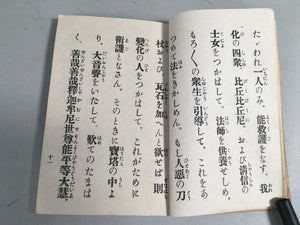 たゞわれ一人のみ。能救護をなす。我
化の四衆。比丘比丘尼。および清信の
士女をつかはして。法師を供養せしめ。
もろ〱の衆生を引導して。これをあ
つめて法をきかしめん。もし人惡の刀
杖および。瓦石を加へんと欲せば則
變化の人をつかはして。これがために
衛護となさん。そのときに寳塔の中よ
り。大音聲をいたして。歎てのたまは
く。善哉善哉釋迦牟尼世尊能平等大慧。
十一